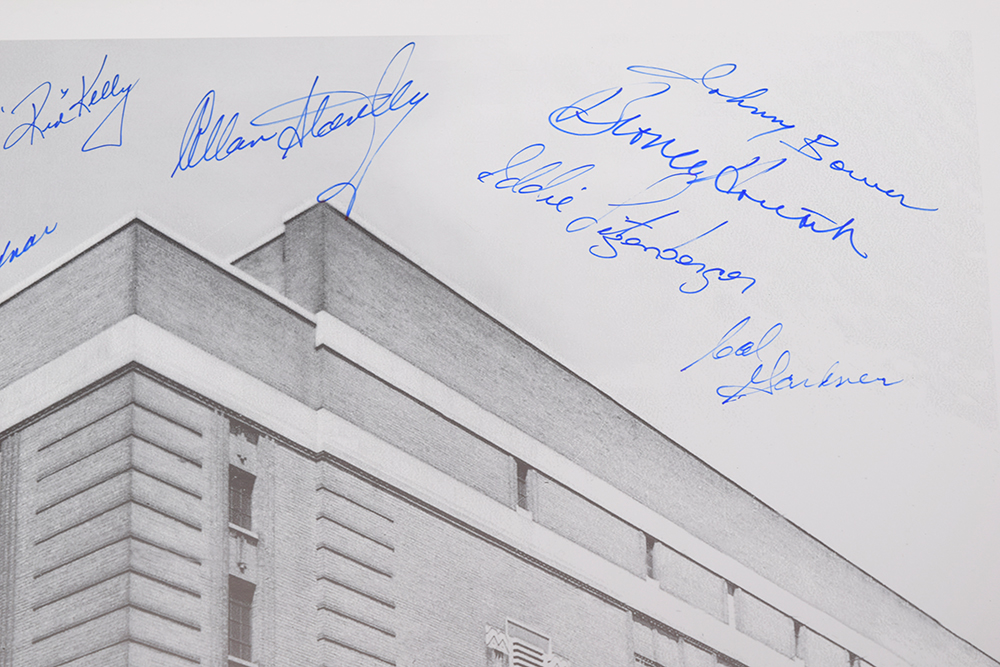 "Red" Kelly
Allan Stanley
Johnny Bower
Bronco Horvath
Eddie Litzenberger
Cal Gardner